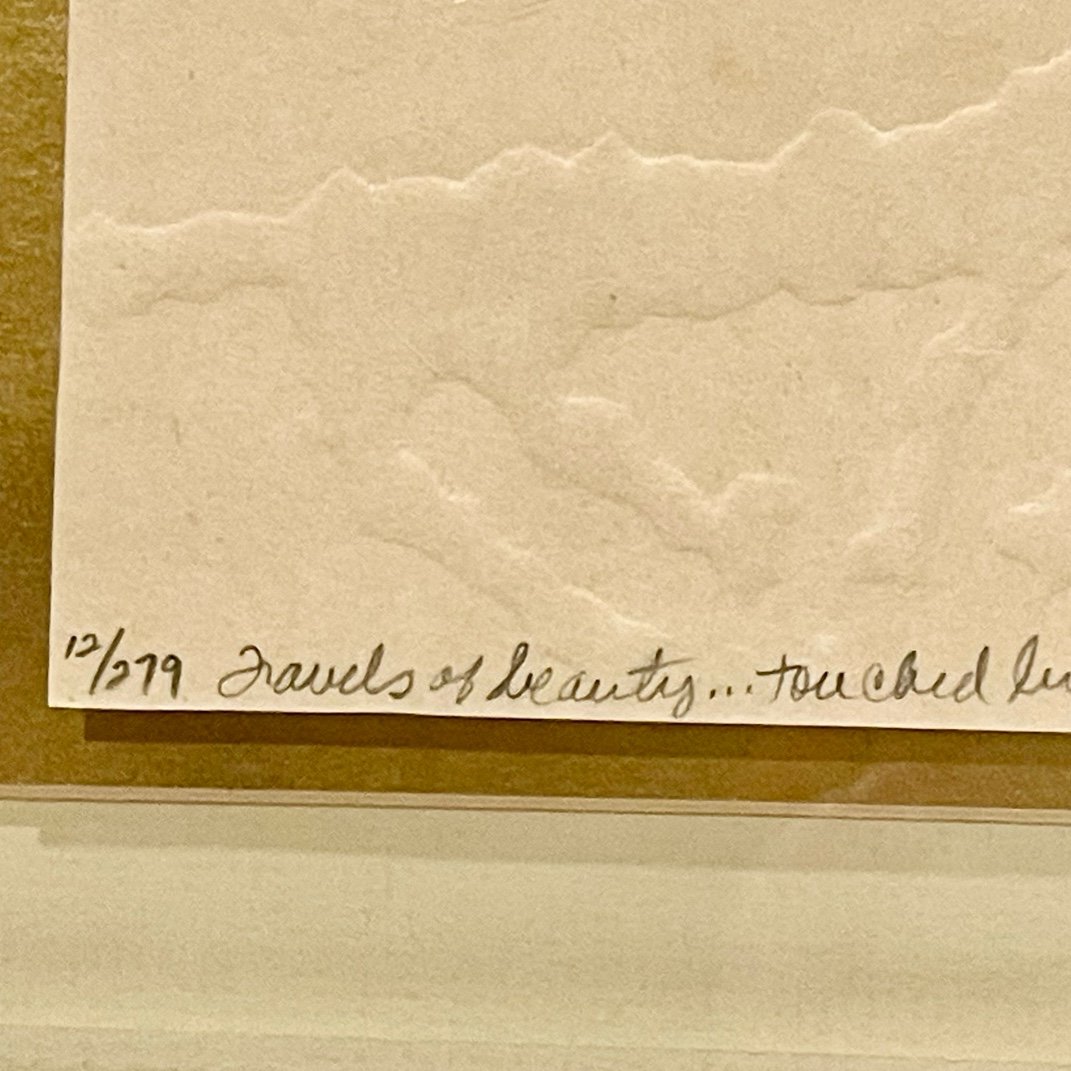 12/279 Travels of beauty... touched